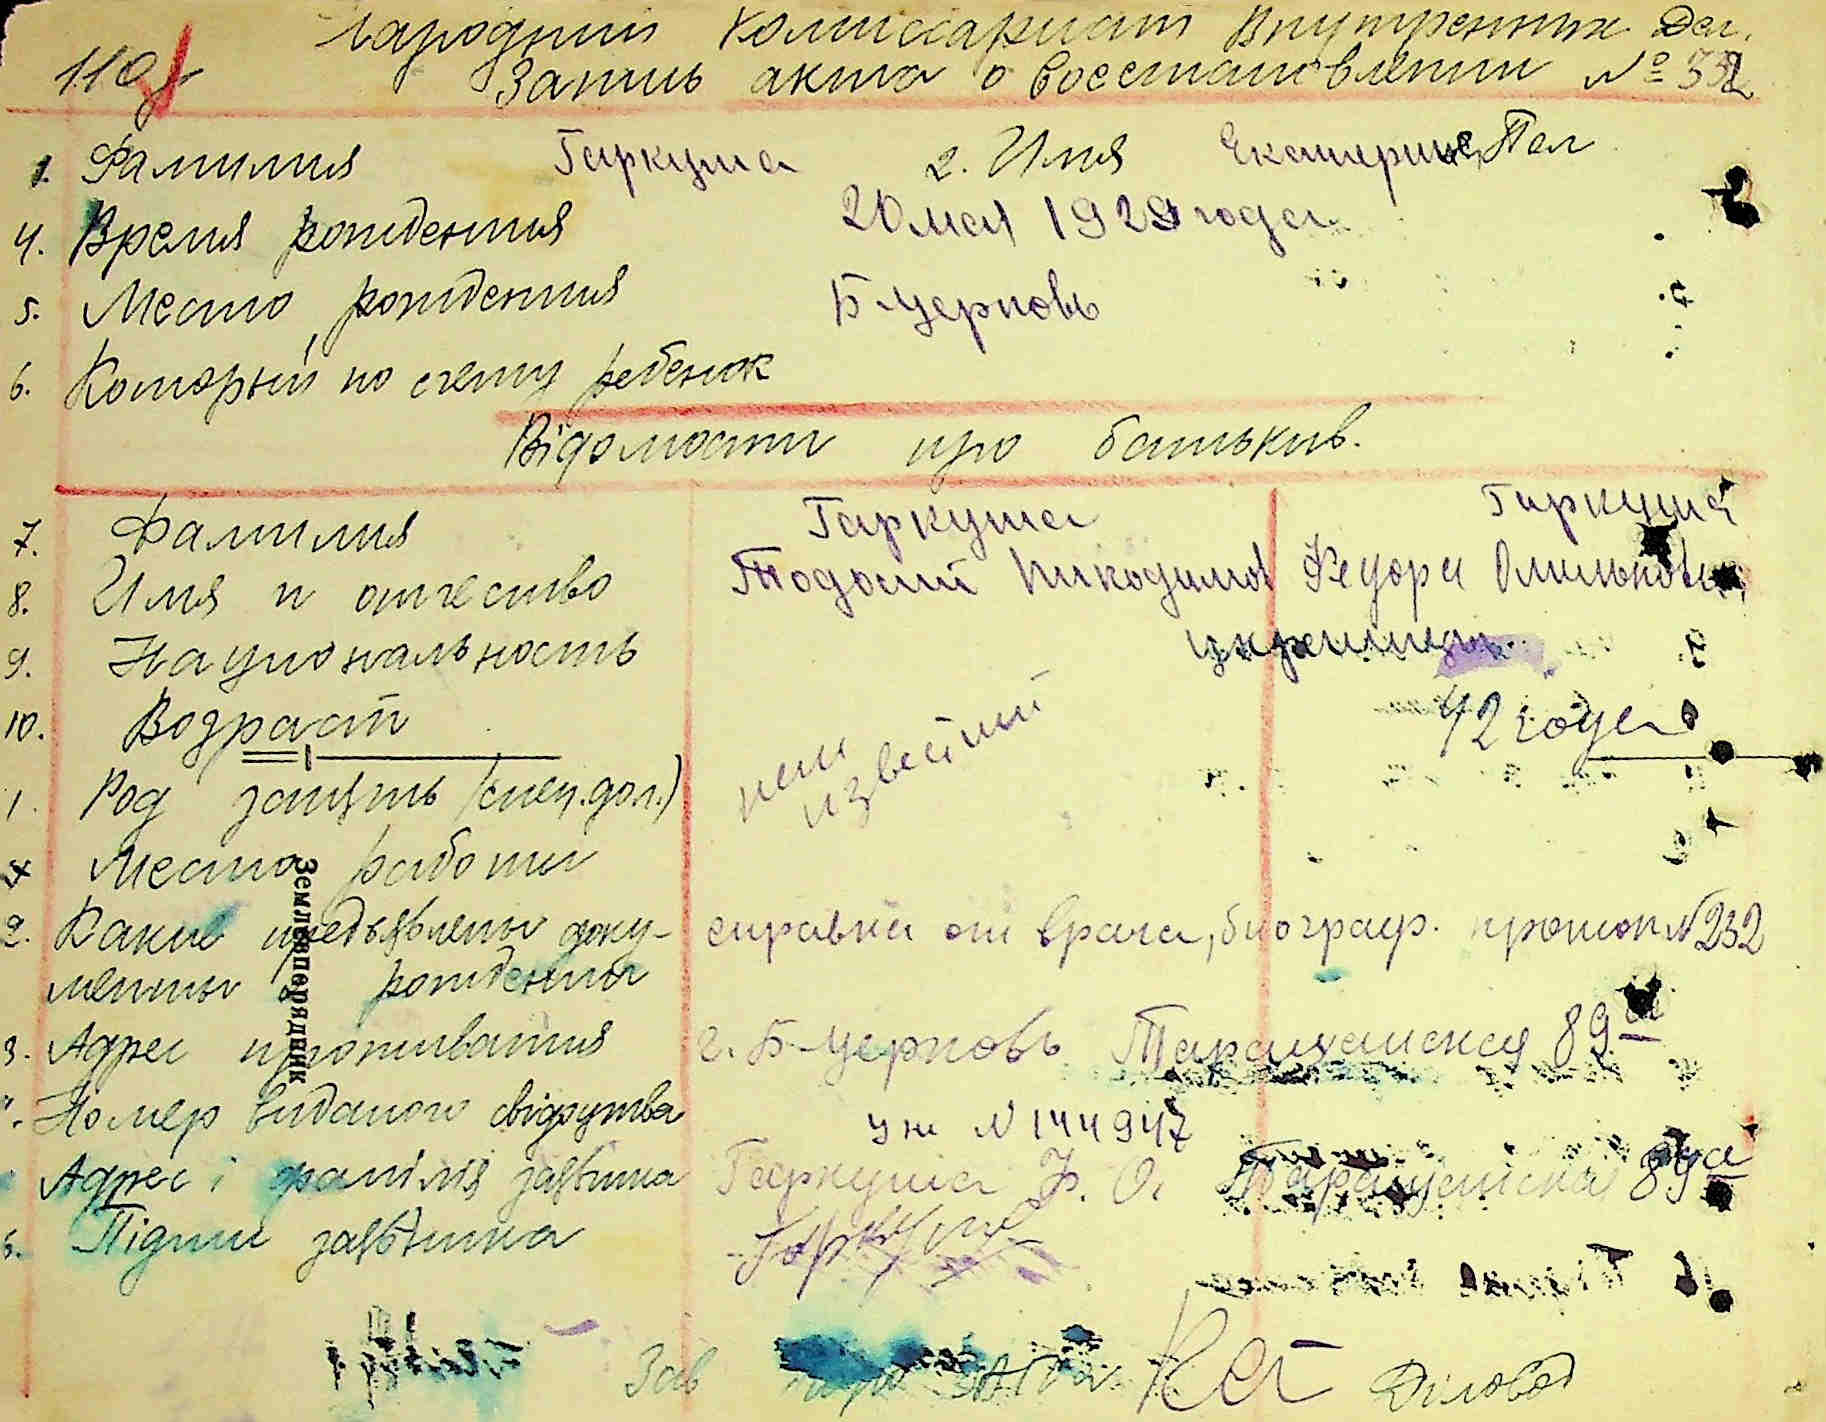 Народний Комиссариат Внутренних Дел.
110
Запись акта о восстановлении № 332
1. Фамилия Гаркуша 2. Имя Екатерина
4. Время рождения 20 мая 1929 года
5. Место рождения Б-Церковь
6. Который по счету ребенок
Відомости про батькив.
7. Фамилия Гаркуша Гаркуша
8. Имя и отчество Тодосий Никодимов Федора Омильковна
9. Национальность украинцы
10. Возраст 42 года
неизвестний
1. Род занять (спец. дол.)
Место работы
2. Какие предъявлены доку- справка от врача, биограф. проток N 232
менты рождения
3. Адрес проживания г. Б-Церковь Таращанская 89а
Номер виданого свідоутва уж N 144947
Адрес і фаміля заявника Гаркуша Ф. О. Таращанска 89а
Підпис заявника Гаркуша
Землевпорядник
Зав ЗАГса Діловод